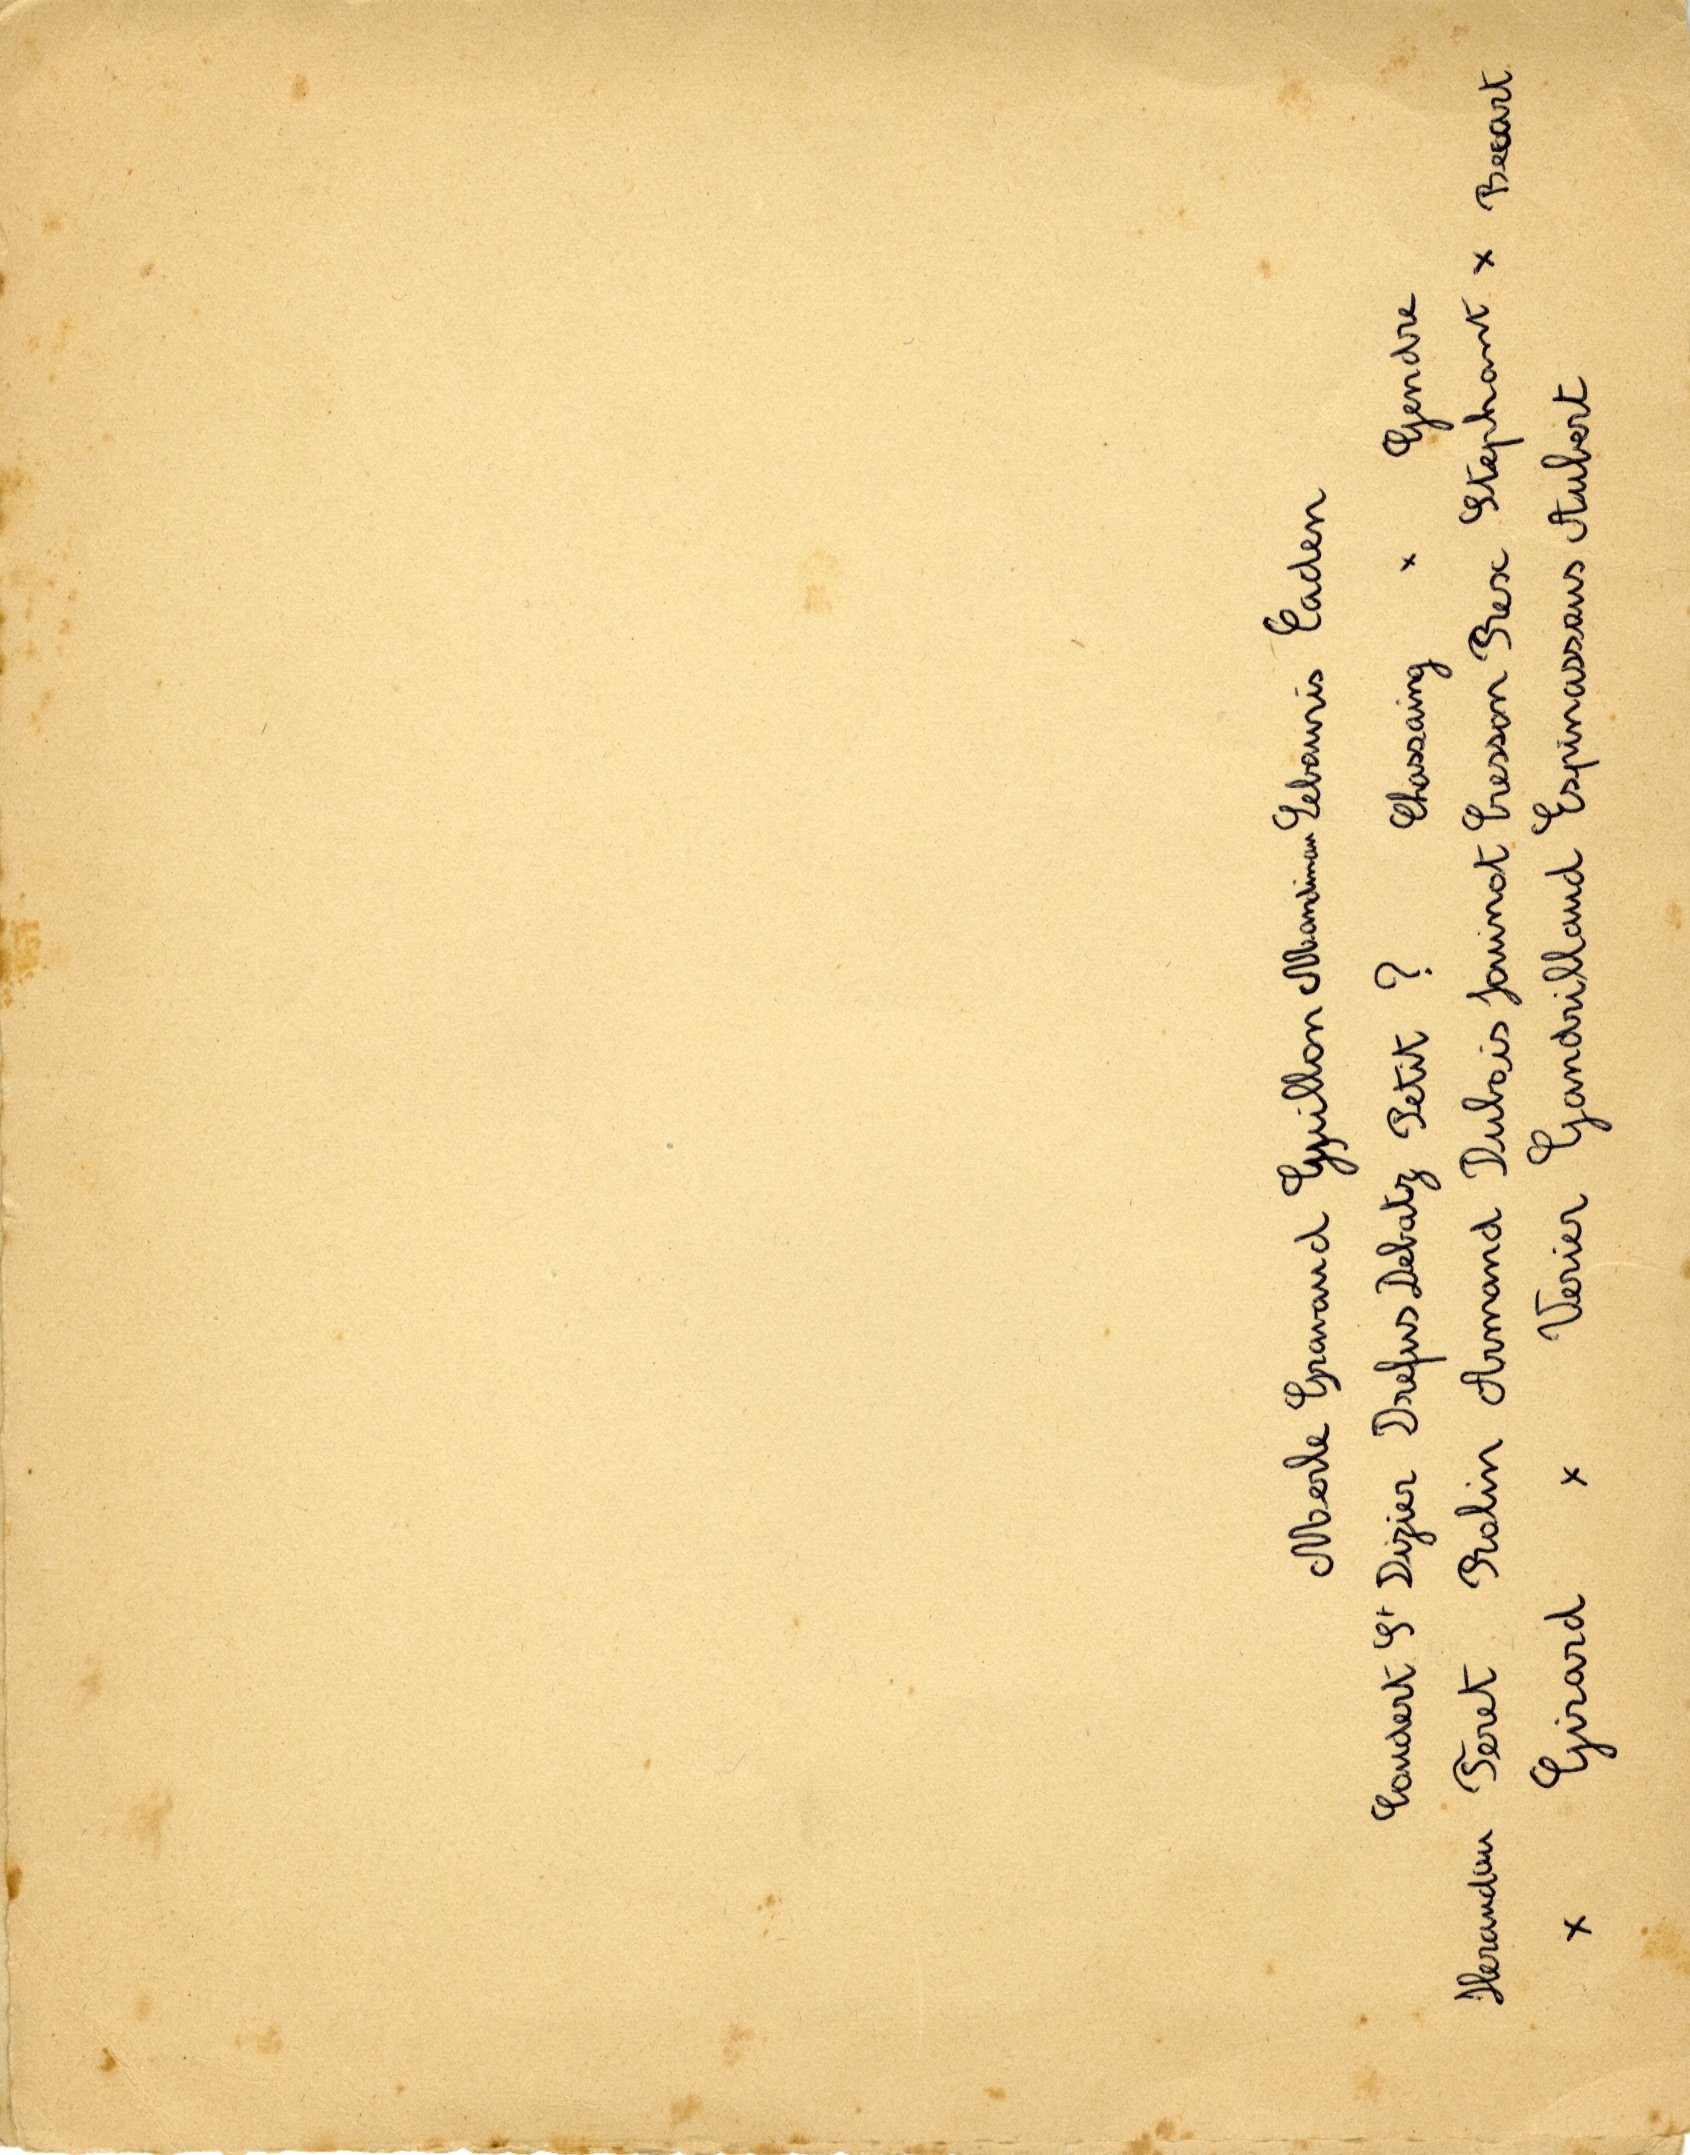 Merle Gravaud Guillon Mandinau Lebouris Caden
Coudert St Dizier Drefus Debatz Petit ? Chassaing x Gendre
Heraudau Feret Rolin Armand Dubois Jouinot Cresson Rex Stephant x Becart
x Girard x Verier Gandrillaud Espinassous Aubert